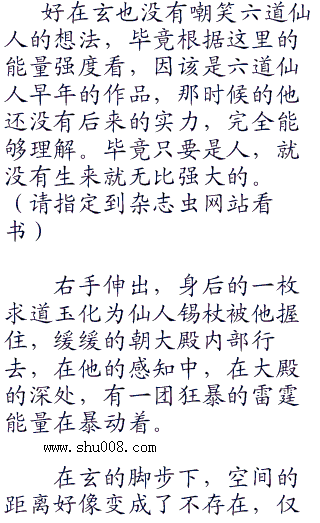 好在玄也没有嘲笑六道仙
人的想法，毕竟根据这里的
能量强度看，因该是六道仙
人早年的作品，那时候的他
还没有后来的实力，完全能
够理解。毕竟只要是人，就
没有生来就无比强大的。
（请指定到杂志虫网站看
书）
右手伸出，身后的一枚
求道玉化为仙人锡杖被他握
住，缓缓的朝大殿内部行
去，在他的感知中，在大殿
的深处，有一团狂暴的雷霆
能量在暴动着。
www.shu008.com
在玄的脚步下，空间的
距离好像变成了不存在，仅